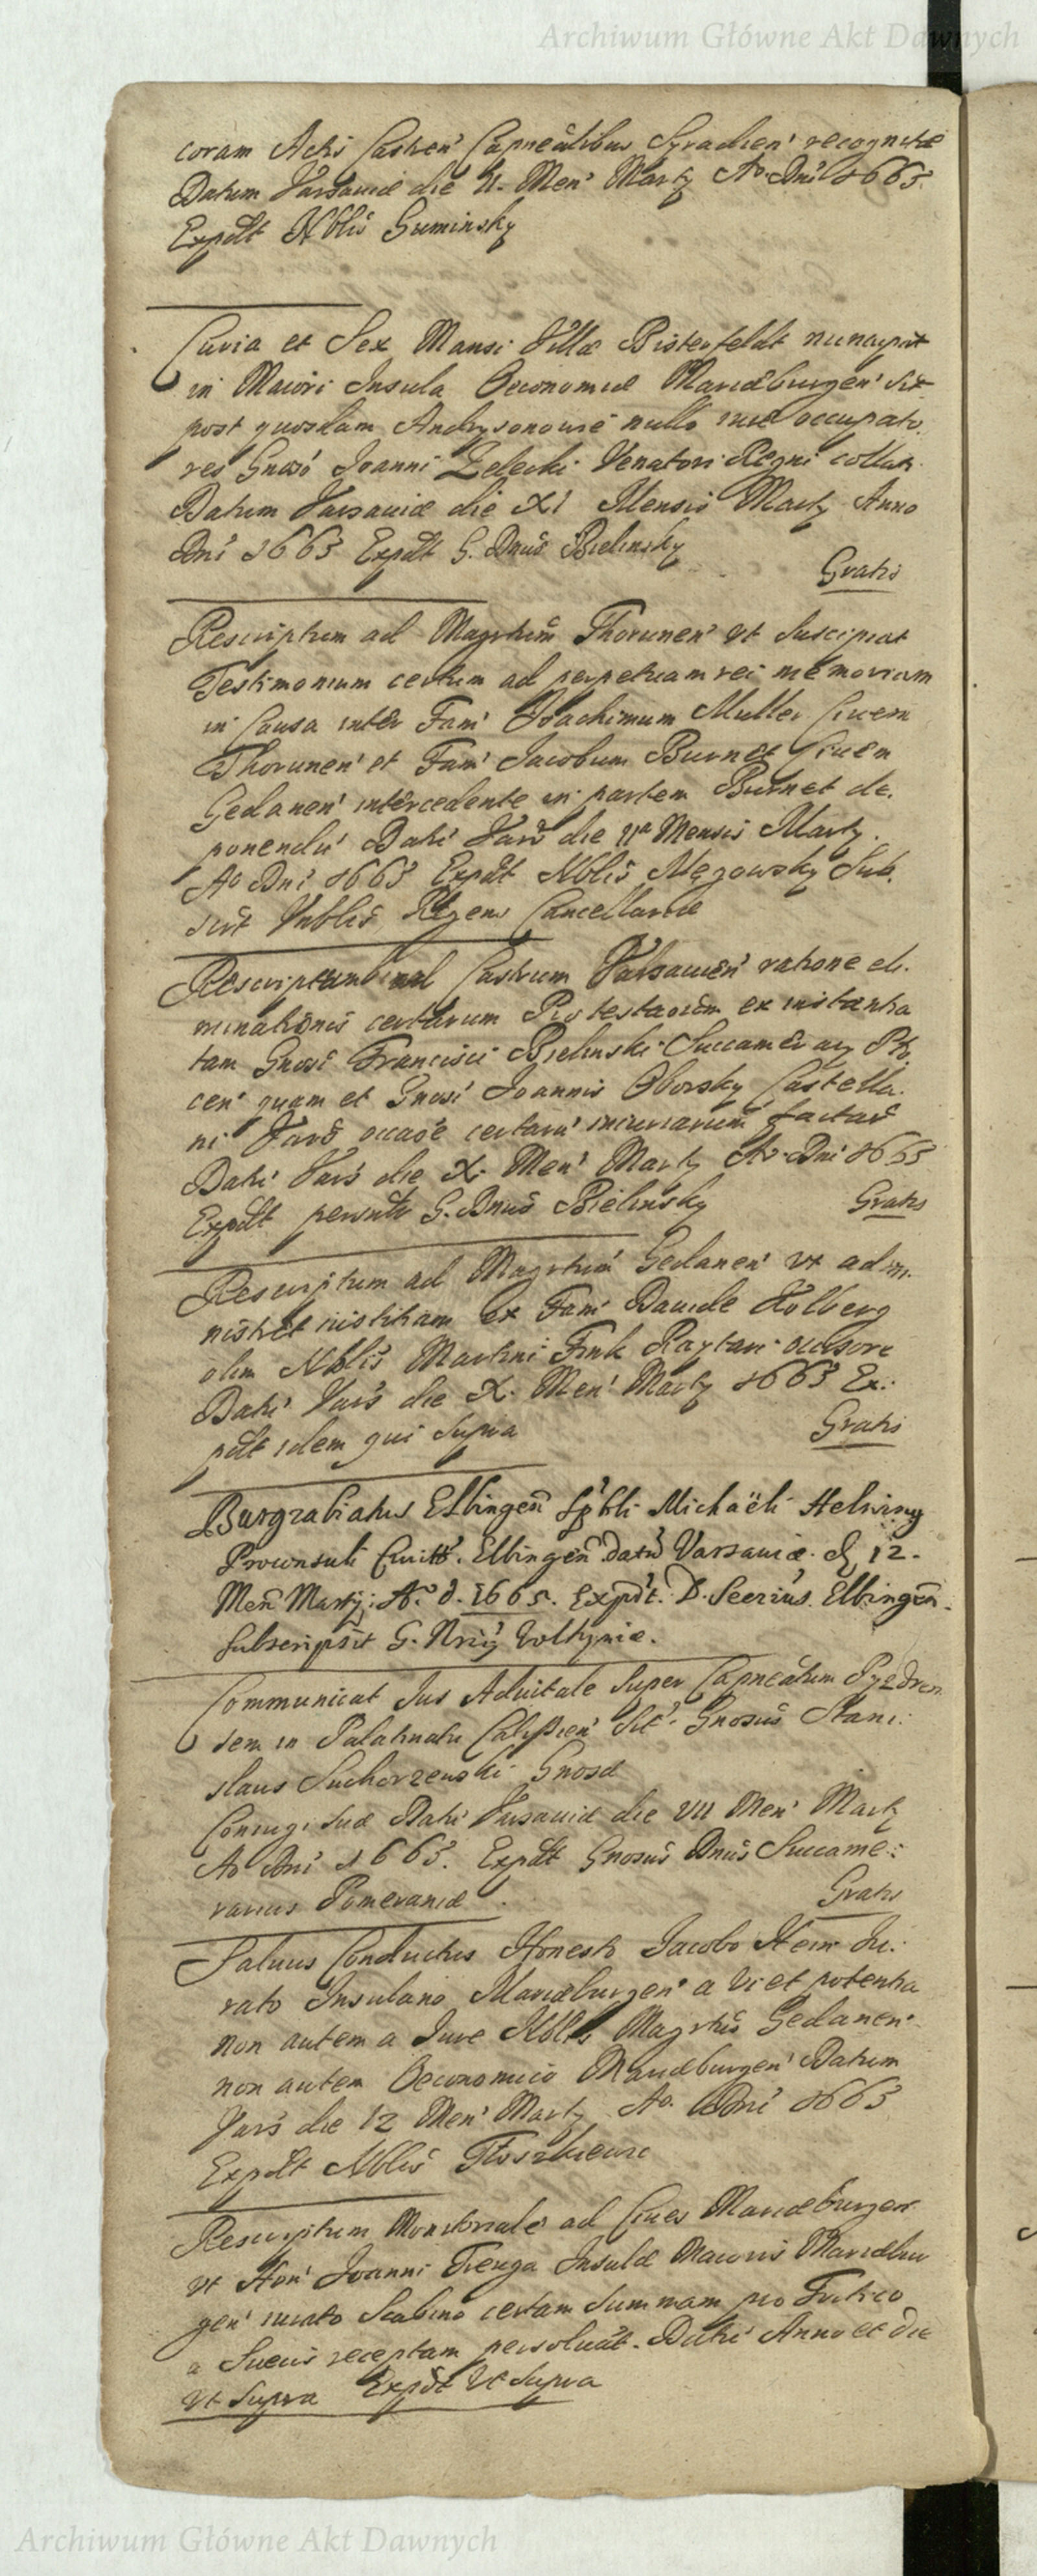 Archiwum Główne Akt Dawnych
coram Actis Castren' Capnealibus Syradien' recognitæ
Datum Varsaviæ die 11. Men' Marty Ao Dni 1663.
Expdt Nblis Guminsky
Curia et Sex Mansi Villæ Bisterfeldt nuncupat
in Maiori Insula Oeconomiæ Mariæburgen' sit
post quosdam nullo iure occupato
res Gnoso Joanni Zelecki Venatori Regni collat.
Datum Varsaviæ die XI Mensis Marty Anno
Dni 1663 Expdt G. Dnus Bielinsky
Gratis
Rescriptum ad Magrtum Thorunen' vt suscipiat
Testimonium certum ad perpetuam rei memoriam
in Causa inter Fam' Joachimum Muller Civem
Thorunen' et Fam' Jacobum Burnet Civem
Gedanen' intercedente in partem Burnet de.
ponendu' Dati Vars die 11a Mensis Marty.
Ao Dni 1663 Expdt Nblis Męzowsky Sub.
Regens Cancellariæ
Rescriptum ad Castrum Varsavien' ratione eli.
minationis certarum Protestaonem ex instantia
tam Gnosi Francisci Bielinski Succamerarij
cen' quam et Gnosi Joannis Oborsky Castella.
ni Vars occaõe certaru' iniuriarum factar
Dati Vars die X. Men' Marty Ao Dni 1663
Expdt G. Dnus Bielinsky
Gratis
Rescriptum ad Magrtum Gedanen' vt admi.
nistret iustitiam ex Fam' Davide Holberg
olim Nblis Martini Fink Raytari occisore
Dati Vars die X. Men' Marty 1663 Ex.
pdt idem qui supra
Gratis
Burgrabiatus Elbingen Spbli Michaëli Helwing
Proconsuli Civitt. Elbingen dat Varsaviæ. d 12.
Men Martij: Ao. d. 1665. Expdt. D. Secrius Elbingen.
subscripsit G. Volhyniæ.
Communicat Jus Advitale super Capneatum Pyzdren
sem in Palatinatu Calissien' Sit Gnosus Stani:
slaus Suchorzewski Gnosæ
Coniugi suæ Dati Varsaviæ die VII Men' Marty
Ao Dni 1663. Expdt Gnosus Dnus Succame:
rarius Pomeraniæ
Gratis
Salvus Conductus Honesto Jacobo Hein Ju.
rato Insulano Mariæburgen' a vi et potentia
non autem a Jure Nblis Magrtus Gedanen'
non autem Oeconomico Mariæburgen' Datum
Vars die 12 Men' Marty Ao. Dni 1663
Expdt Nblis
Rescriptum Monitoriale ad Cives Mariæburgen
vt Hon' Joanni Insulæ Maioris Mariæbu
gen' iurato Scabino certam summam pro Tritico
a Suecis receptam persolvãt. Dati Anno et die
vt supra Expdt vt supra
Archiwum Główne Akt Dawnych